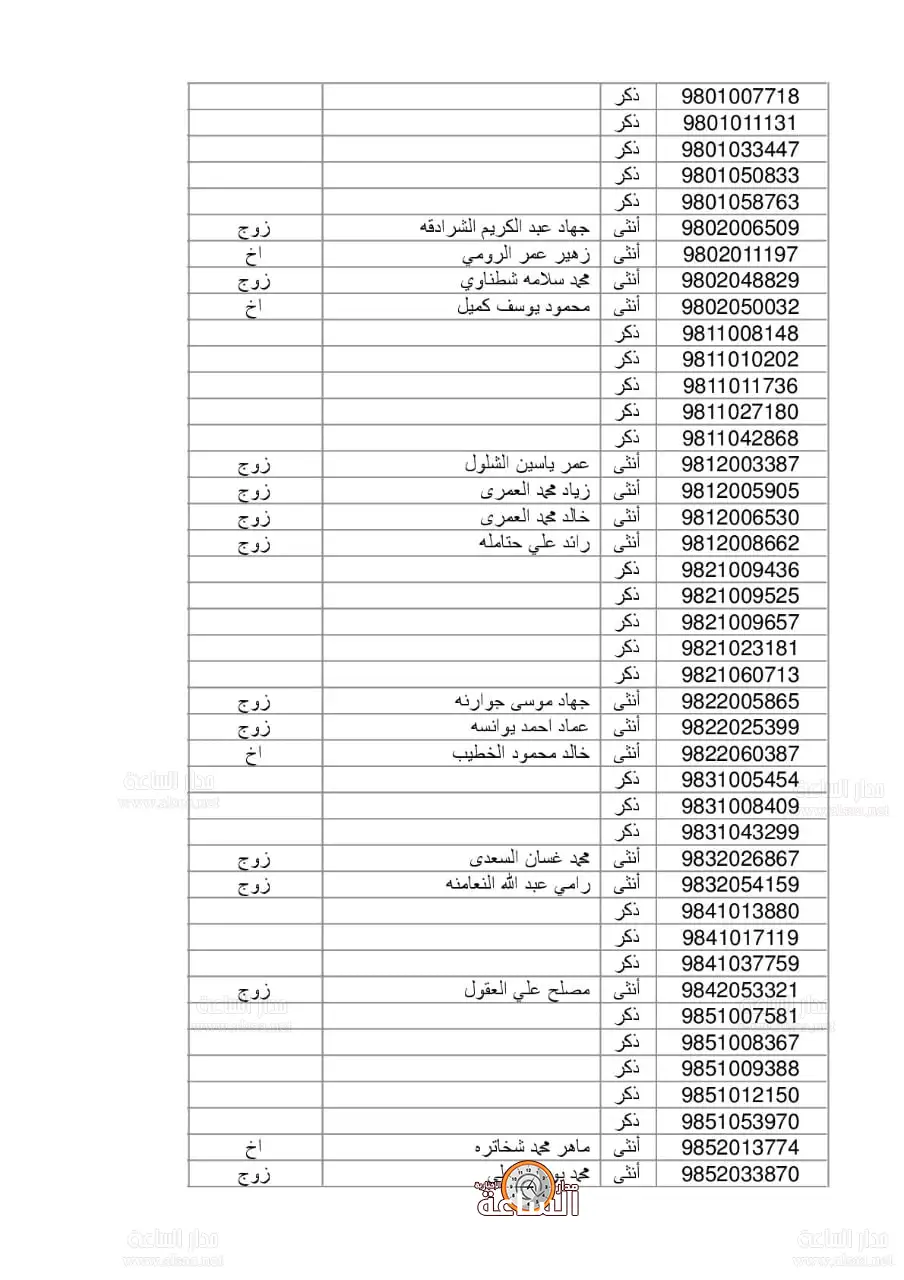 9801007718 ذكر
9801011131 ذكر
9801033447 ذكر
9801050833 ذكر
9801058763 ذكر
9802006509 أنثى جهاد عبد الكريم الشرادقه زوج
9802011197 أنثى زهير عمر الرومي اخ
9802048829 أنثى محمد سلامه شطناوي زوج
9802050032 أنثى محمود يوسف كميل اخ
9811008148 ذكر
9811010202 ذكر
9811011736 ذكر
9811027180 ذكر
9811042868 ذكر
9812003387 أنثى عمر ياسين الشلول زوج
9812005905 أنثى زياد محمد العمرى زوج
9812006530 أنثى خالد محمد العمرى زوج
9812008662 أنثى رائد علي حتامله زوج
9821009436 ذكر
9821009525 ذكر
9821009657 ذكر
9821023181 ذكر
9821060713 ذكر
9822005865 أنثى جهاد موسى جوارنه زوج
9822025399 أنثى عماد احمد يوانسه زوج
9822060387 أنثى خالد محمود الخطيب اخ
9831005454 ذكر
9831008409 ذكر
9831043299 ذكر
9832026867 أنثى محمد غسان السعدى زوج
9832054159 أنثى رامي عبد الله النعامنه زوج
9841013880 ذكر
9841017119 ذكر
9841037759 ذكر
9842053321 أنثى مصلح علي العقول زوج
9851007581 ذكر
9851008367 ذكر
9851009388 ذكر
9851012150 ذكر
9851053970 ذكر
9852013774 أنثى ماهر محمد شخاتره اخ
9852033870 أنثى محمد زوج
مدار الساعة الإخبارية
مدار الساعة
www.alsaa.net